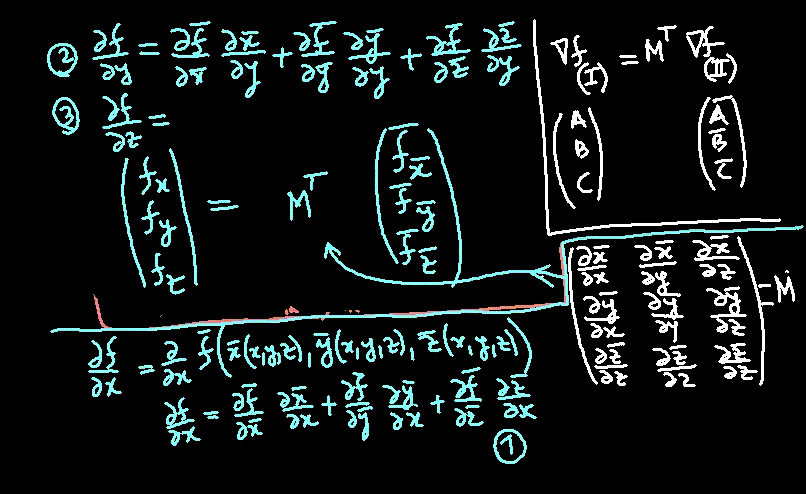 ② ∂f/∂y = ∂f̄/∂x̄ ∂x̄/∂y + ∂f̄/∂ȳ ∂ȳ/∂y + ∂f̄/∂z̄ ∂z̄/∂y
③ ∂f/∂z =
(f_x f_y f_z) = M^T (f̄_x̄ f̄_ȳ f̄_z̄)
∇f (I) = M^T ∇f (II)
(A B C) (Ā B̄ C̄)
(∂x̄/∂x ∂x̄/∂y ∂x̄/∂z
∂ȳ/∂x ∂ȳ/∂y ∂ȳ/∂z
∂z̄/∂z ∂z̄/∂z ∂z̄/∂z) = M
∂f/∂x = ∂/∂x f̄(x̄(x,y,z), ȳ(x,y,z), z̄(x,y,z))
∂f/∂x = ∂f̄/∂x̄ ∂x̄/∂x + ∂f̄/∂ȳ ∂ȳ/∂x + ∂f̄/∂z̄ ∂z̄/∂x
①